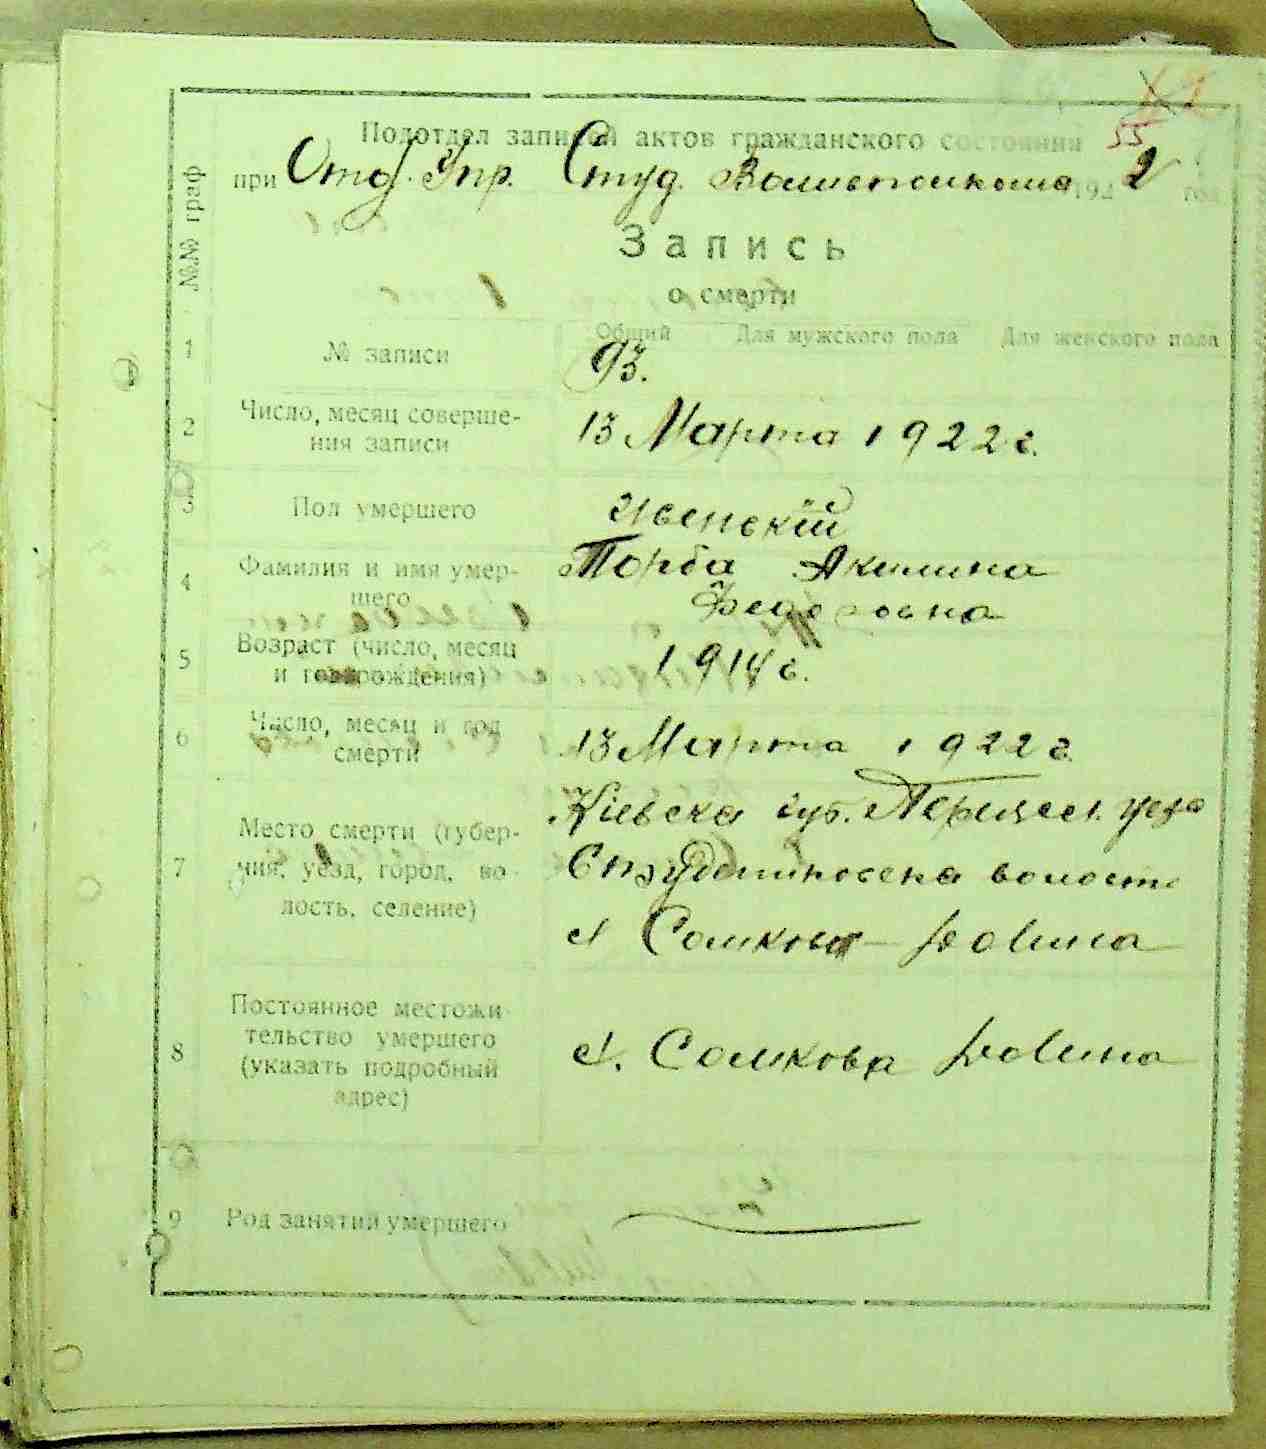 55
Подотдел записей актов гражданского состояния
при Отд. Упр. Студ. Волисполкома 192 2 год
№№ граф
Запись
о смерти
Общий Для мужского пола Для женского пола
1 № записи 93.
2 Число, месяц соверше-
ния записи 13 Марта 1922 г.
3 Пол умершего
4 Фамилия и имя умер-
шего Торба Акилина
Федоровна
5 Возраст (число, месяц
и год рождения) 1914 г.
6 Число, месяц и год
смерти 13 Марта 1922 г.
7 Место смерти (губер-
ния, уезд, город, во-
лость, селение)
Кіевска губ. уезд
волость
Сомкова Долина
8 Постоянное местожи-
тельство умершего
(указать подробный
адрес)
с. Сомкова Долина
9 Род занятий умершего